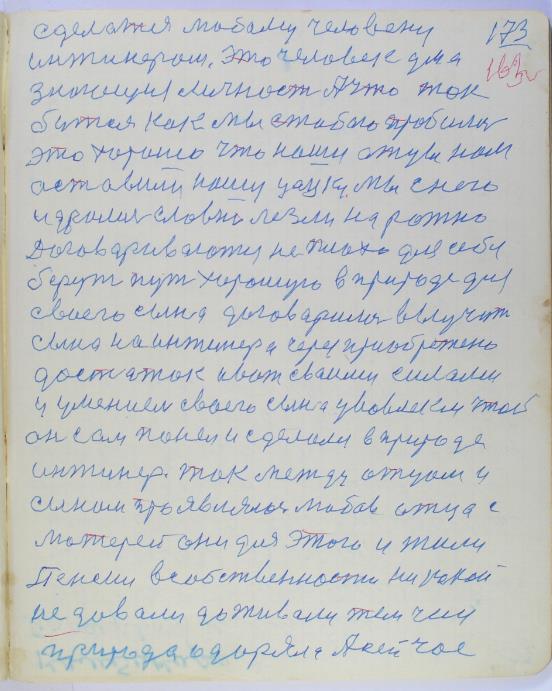 сделатся любому человеку 173
инжинером. Это человек два 163
знающия личност А что ток
битея как мы с тобою пробился
это хорошо что наши отцы нам
оставили нашу цацку, мы с него
идролис словно лезли на рожно
Договаривалажи не плохо для себя
берут пут хорошую в природе для
своего сына договорился выучит
сына на инжинера через приобретено
достаток ивот сваими силами
и умением своего сына уволокли чтоб
он сам понел и сделали в природе
инжинер. ток между отцом и
сыном проявиласа любов отца с
матерей они для Этого и жили
Пенсии в собственности никокой
не довали доживали тем чем
природа одоряла А сейчас